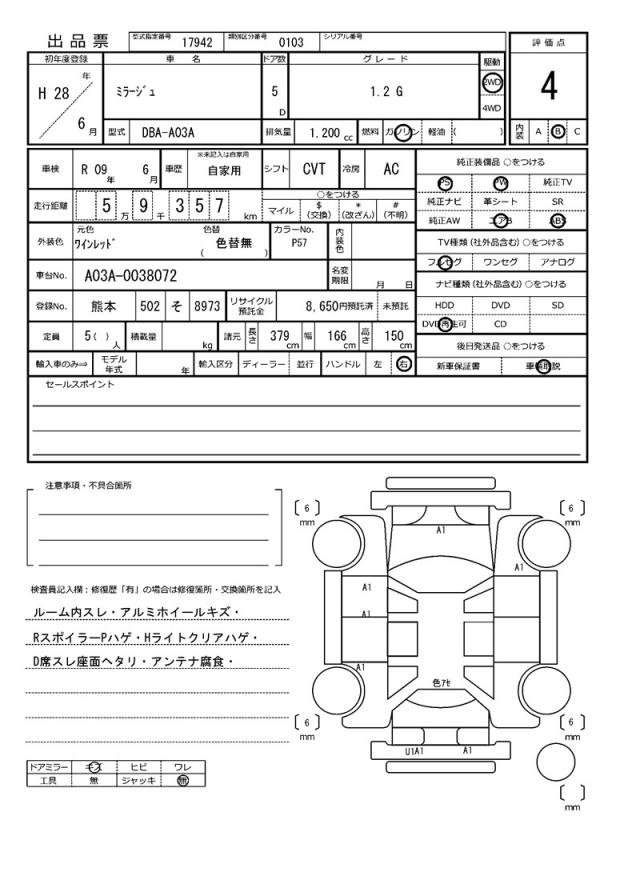 出品票 型式指定番号 17942 類別区分番号 0103 シリアル番号
初年度登録 車名 ドア数 グレード 駆動 評価点
H 28 年 6 月 ミラージュ 5 D 1.2 G 2WD 4WD 4
型式 DBA-A03A 排気量 1.200 cc 燃料 ガソリン 軽油 ( ) 内装 A B C
車検 R 09 年 6 月 車歴 ※未記入は自家用 自家用 シフト CVT 冷房 AC 純正装備品 ○をつける
PS PW 純正TV
走行距離 5 万 9 千 3 5 7 km ○をつける マイル $ (交換) * (改ざん) # (不明) 純正ナビ 革シート SR
純正AW エアB ABS
外装色 元色 ワインレッド 色替 色替無 ( ) カラーNo. P57 内装色 TV種類 (社外品含む) ○をつける
フルセグ ワンセグ アナログ
車台No. A03A-0038072 名変期限 月 日 ナビ種類 (社外品含む) ○をつける
登録No. 熊本 502 そ 8973 リサイクル預託金 8,650円預託済 未預託 HDD DVD SD
DVD再生可 CD
定員 5 ( ) 人 積載量 kg 諸元 長さ 379 cm 幅 166 cm 高さ 150 cm 後日発送品 ○をつける
輸入車のみ⇒ モデル年式 年 輸入区分 ディーラー 並行 ハンドル 左 右 新車保証書 車輌取説
セールスポイント
注意事項・不具合箇所
検査員記入欄：修復歴「有」の場合は修復箇所・交換箇所を記入
ルーム内スレ・アルミホイールキズ・
RスポイラーPハゲ・Hライトクリアハゲ・
D席スレ座面ヘタリ・アンテナ腐食・
ドアミラー キズ ヒビ ワレ
工具 無 ジャッキ 無
6 mm
6 mm
A1
A1
A1
A1
A1
色アセ
6 mm
6 mm
U1A1 A1
mm